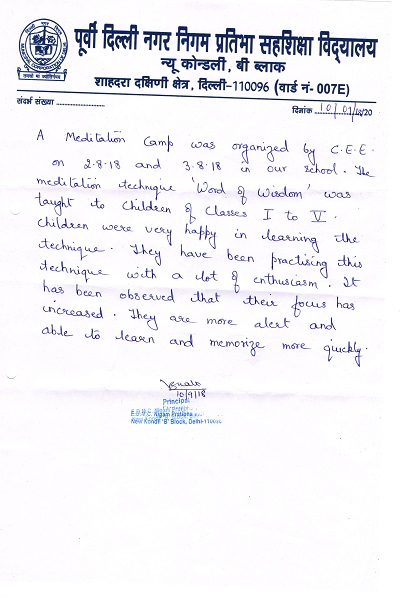 पूर्वी दिल्ली नगर निगम प्रतिभा सहशिक्षा विद्यालय
न्यू कोन्डली, बी ब्लाक
शाहदरा दक्षिणी क्षेत्र, दिल्ली-110096 (वार्ड नं- 007E)
संदर्भ संख्या
दिनांक 20
A Meditation Camp was organized by C.E.E.
on 2.8.18 and 3.8.18 in our school. The
meditation technique 'Word of Wisdom' was
taught to children of Classes I to V.
Children were very happy in learning the
technique. They have been practising this
technique with a lot of enthusiasm. It
has been observed that their focus has
increased. They are more alert and
able to learn and memorize more quickly.
10/9/18
Principal
E.D.M.C. Nigam Pratibha
New Kondli 'B' Block, Delhi-110096